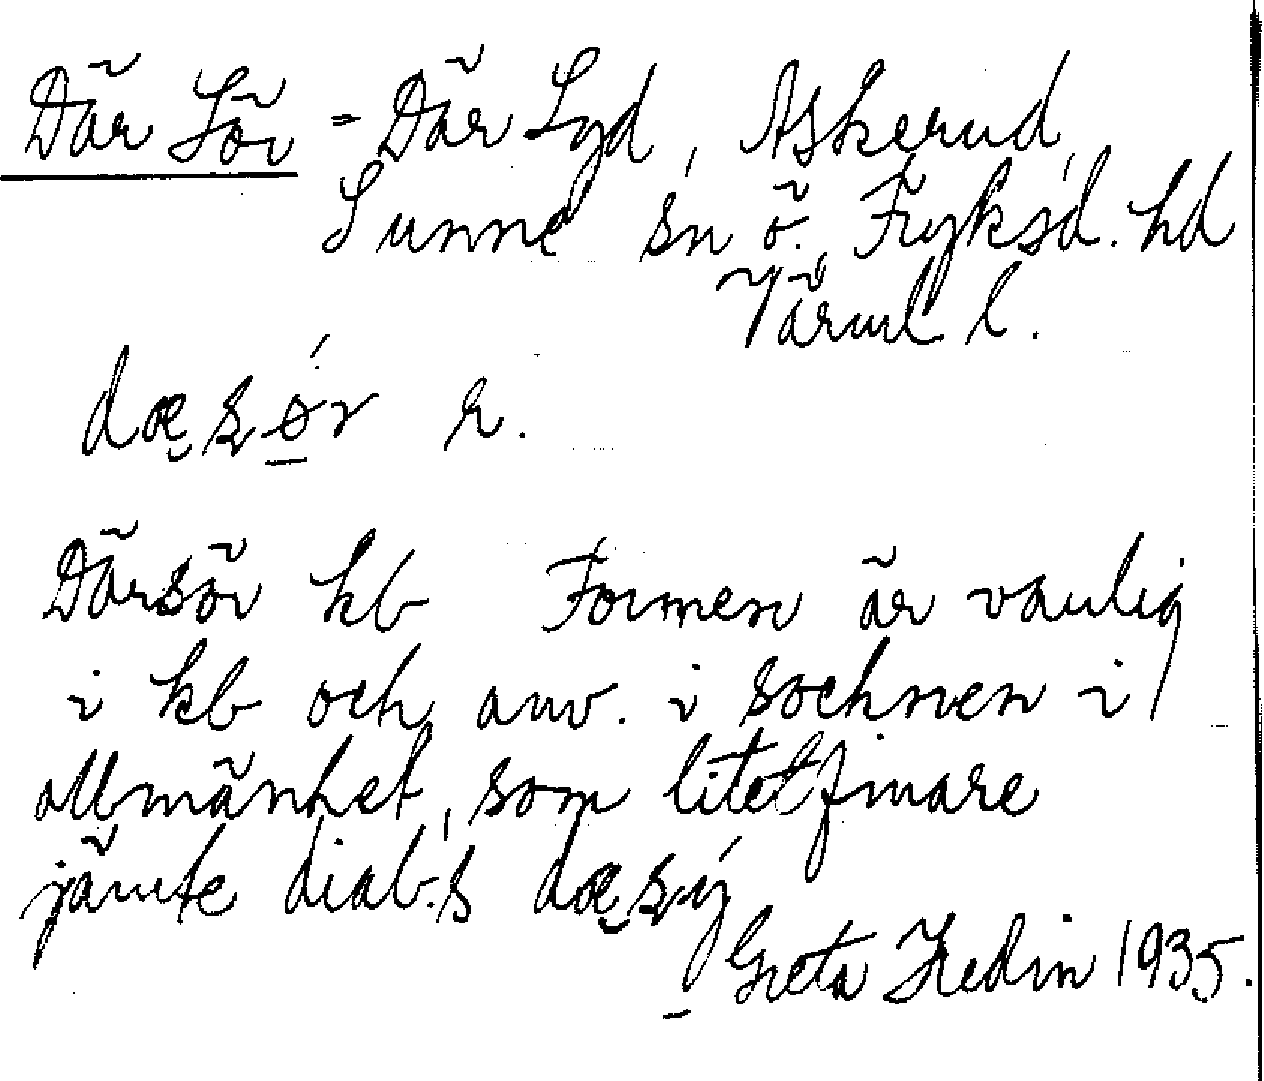 Där Sör = Där Syd, Askerud,
Sunne sn Ö. Fryksd. hd
Värml l.
dæsǿ̱r r.
Därsör kb Formen är vanlig
i kb och anv. i socknen i
allmänhet, som litet finare
jämte dial:s dæsý̱
Greta Hedin 1935.